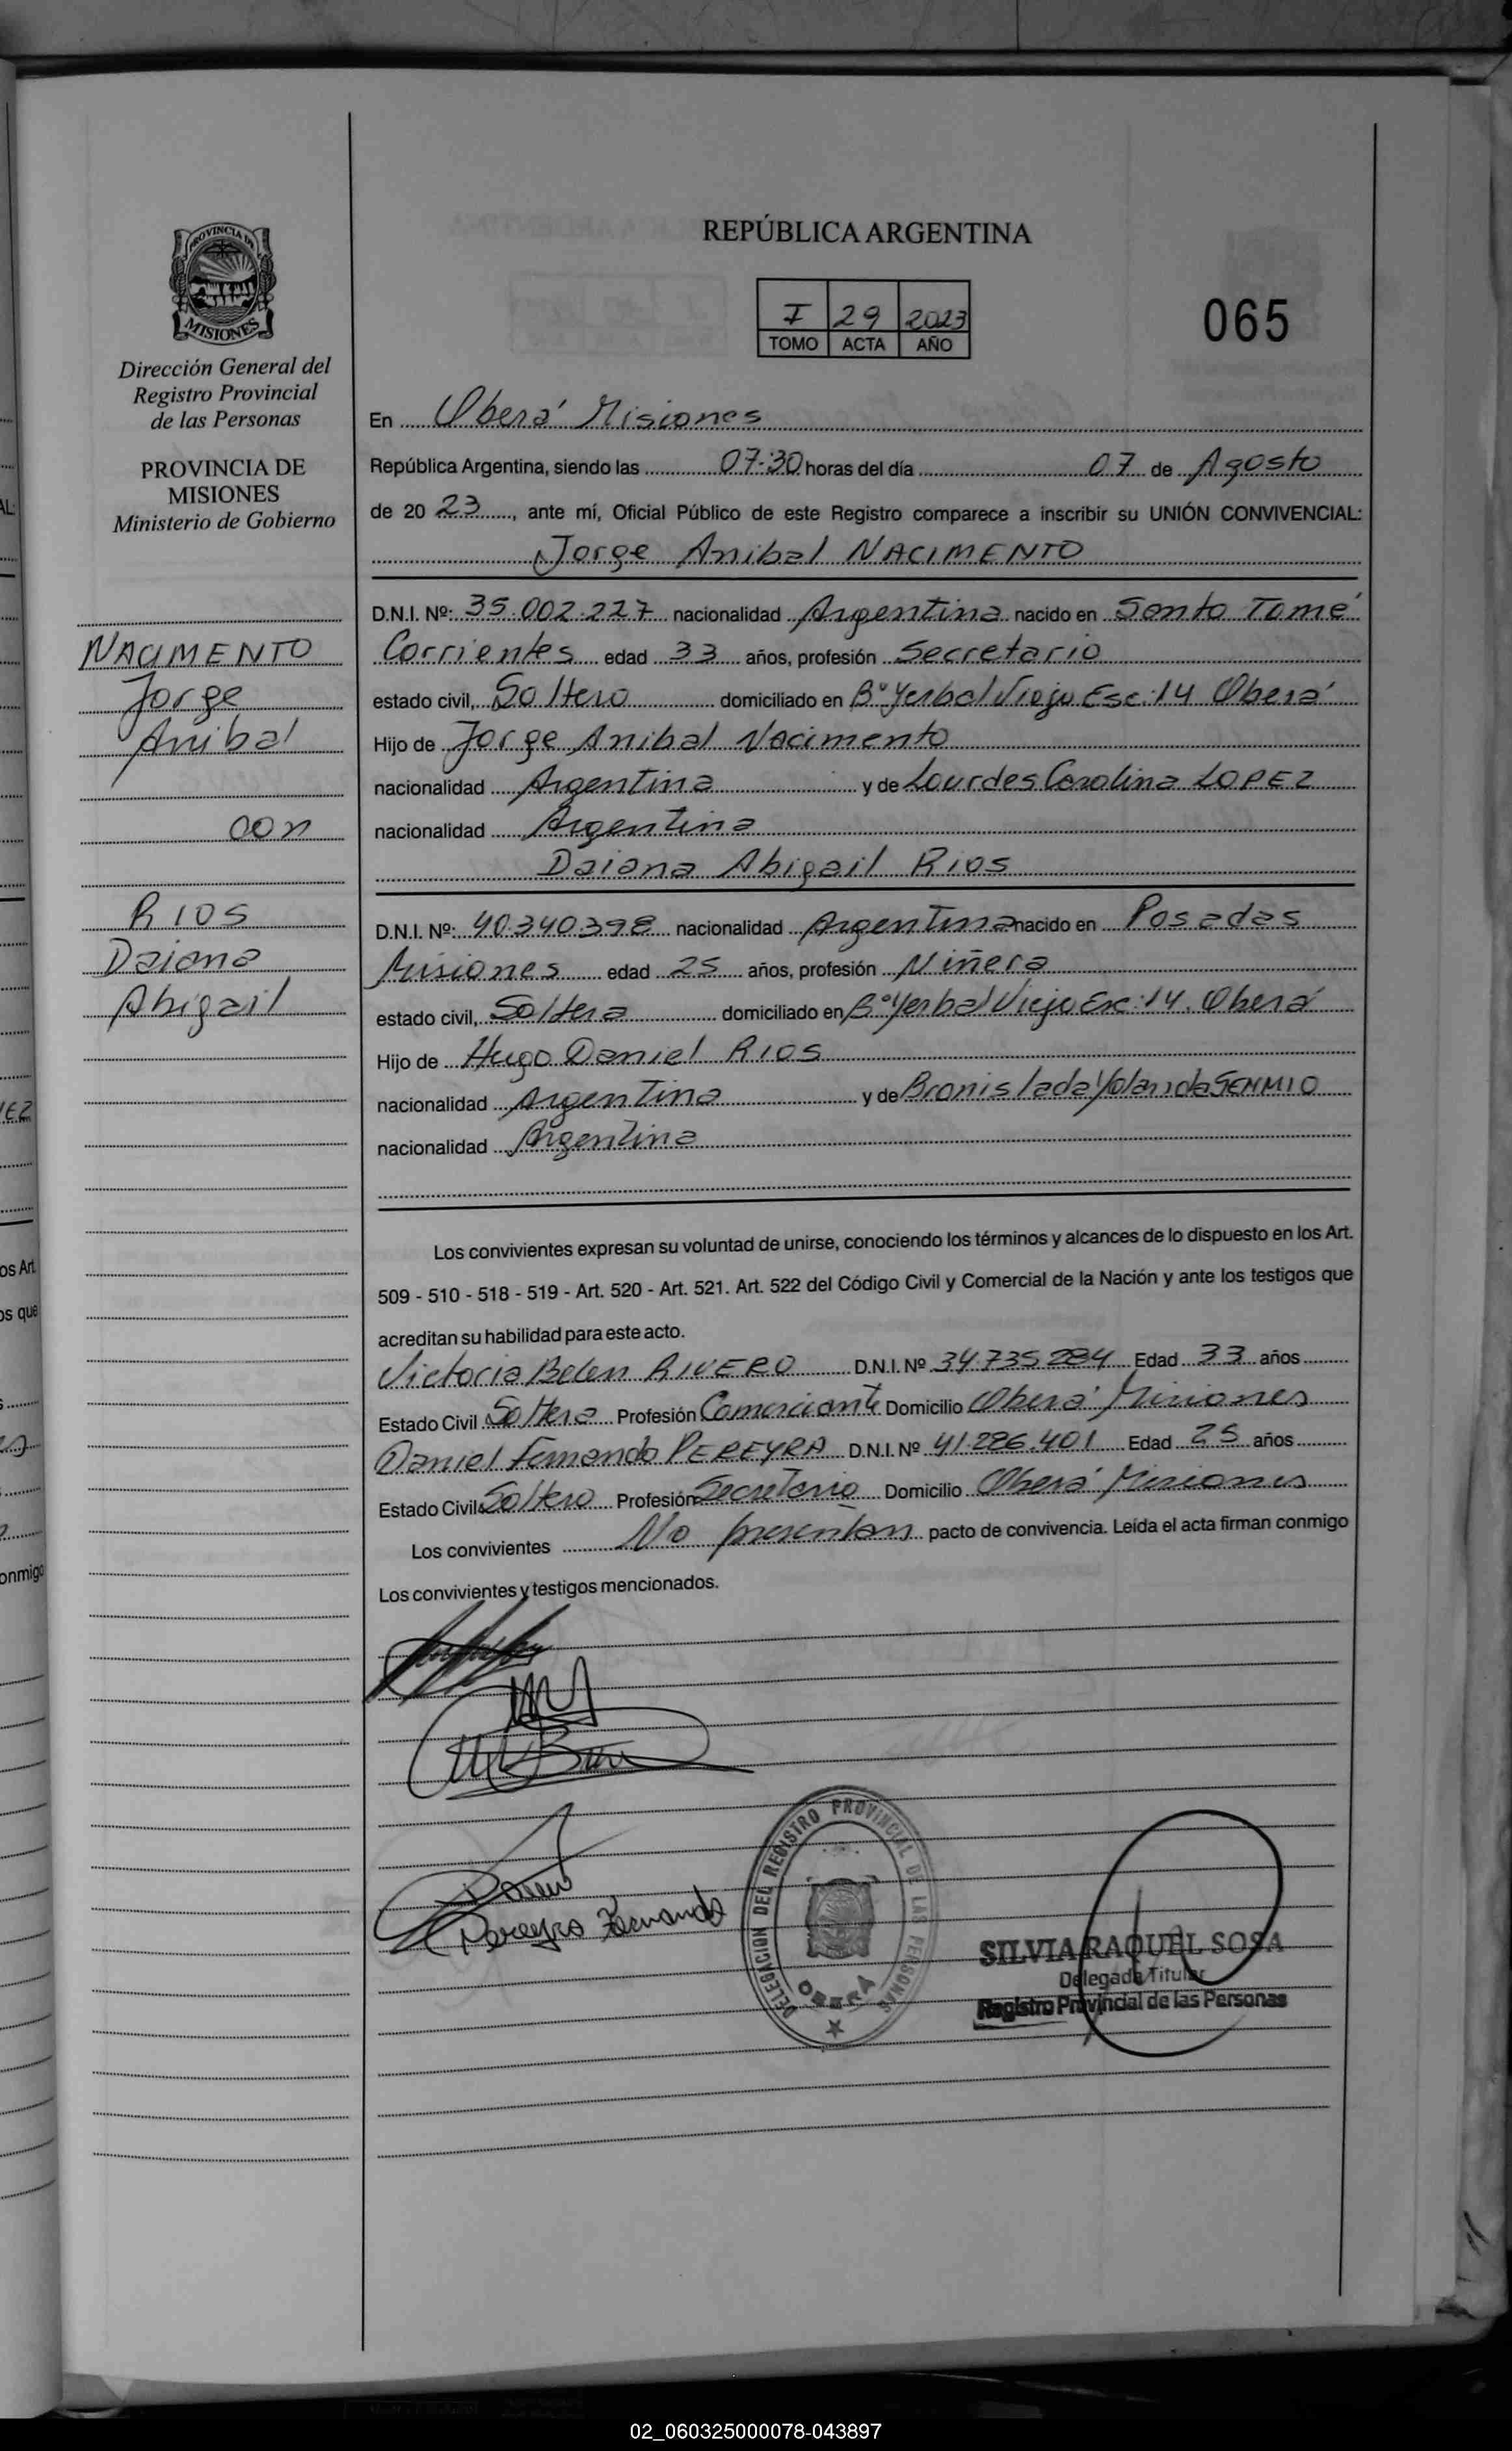 REPÚBLICA ARGENTINA
I 29 2023
TOMO ACTA AÑO
065
PROVINCIA DE
MISIONES
Dirección General del
Registro Provincial
de las Personas
PROVINCIA DE
MISIONES
Ministerio de Gobierno
NACIMENTO
Jorge
Anibal
con
RIOS
Daiana
Abigail
En Oberá Misiones
República Argentina, siendo las 07:30 horas del día 07 de Agosto
de 20 23, ante mí, Oficial Público de este Registro comparece a inscribir su UNIÓN CONVIVENCIAL:
Jorge Anibal NACIMENTO
D.N.I. Nº: 35.002.227 nacionalidad Argentina nacido en Santo Tomé
Corrientes edad 33 años, profesión Secretario
estado civil, Soltero domiciliado en Bº Yerbal Viejo Esc: 14 Oberá
Hijo de Jorge Anibal Nacimento
nacionalidad Argentina y de Lourdes Carolina LOPEZ
nacionalidad Argentina
Daiana Abigail RIOS
D.N.I. Nº: 40.340.398 nacionalidad Argentina nacido en Posadas
Misiones edad 25 años, profesión Niñera
estado civil, Soltera domiciliado en Bº Yerbal Viejo Esc: 14. Oberá
Hijo de Hugo Daniel RIOS
nacionalidad Argentina y de Bronislada Yolanda
nacionalidad Argentina
Los convivientes expresan su voluntad de unirse, conociendo los términos y alcances de lo dispuesto en los Art.
509 - 510 - 518 - 519 - Art. 520 - Art. 521. Art. 522 del Código Civil y Comercial de la Nación y ante los testigos que
acreditan su habilidad para este acto.
Victoria Belen RIVERO D.N.I. Nº 34.735.284 Edad 33 años
Estado Civil Soltera Profesión Comerciante Domicilio Oberá Misiones
Daniel Fernando PEREYRA D.N.I. Nº 41.286.401 Edad 25 años
Estado Civil Soltero Profesión Secretario Domicilio Oberá Misiones
Los convivientes No presentan pacto de convivencia. Leída el acta firman conmigo
Los convivientes y testigos mencionados.
Pereyra Fernando
DELEGACION DEL REGISTRO PROVINCIAL DE LAS PERSONAS
OBERA
SILVIA RAQUEL SOSA
Delegada Titular
Registro Provincial de las Personas
02_060325000078-043897